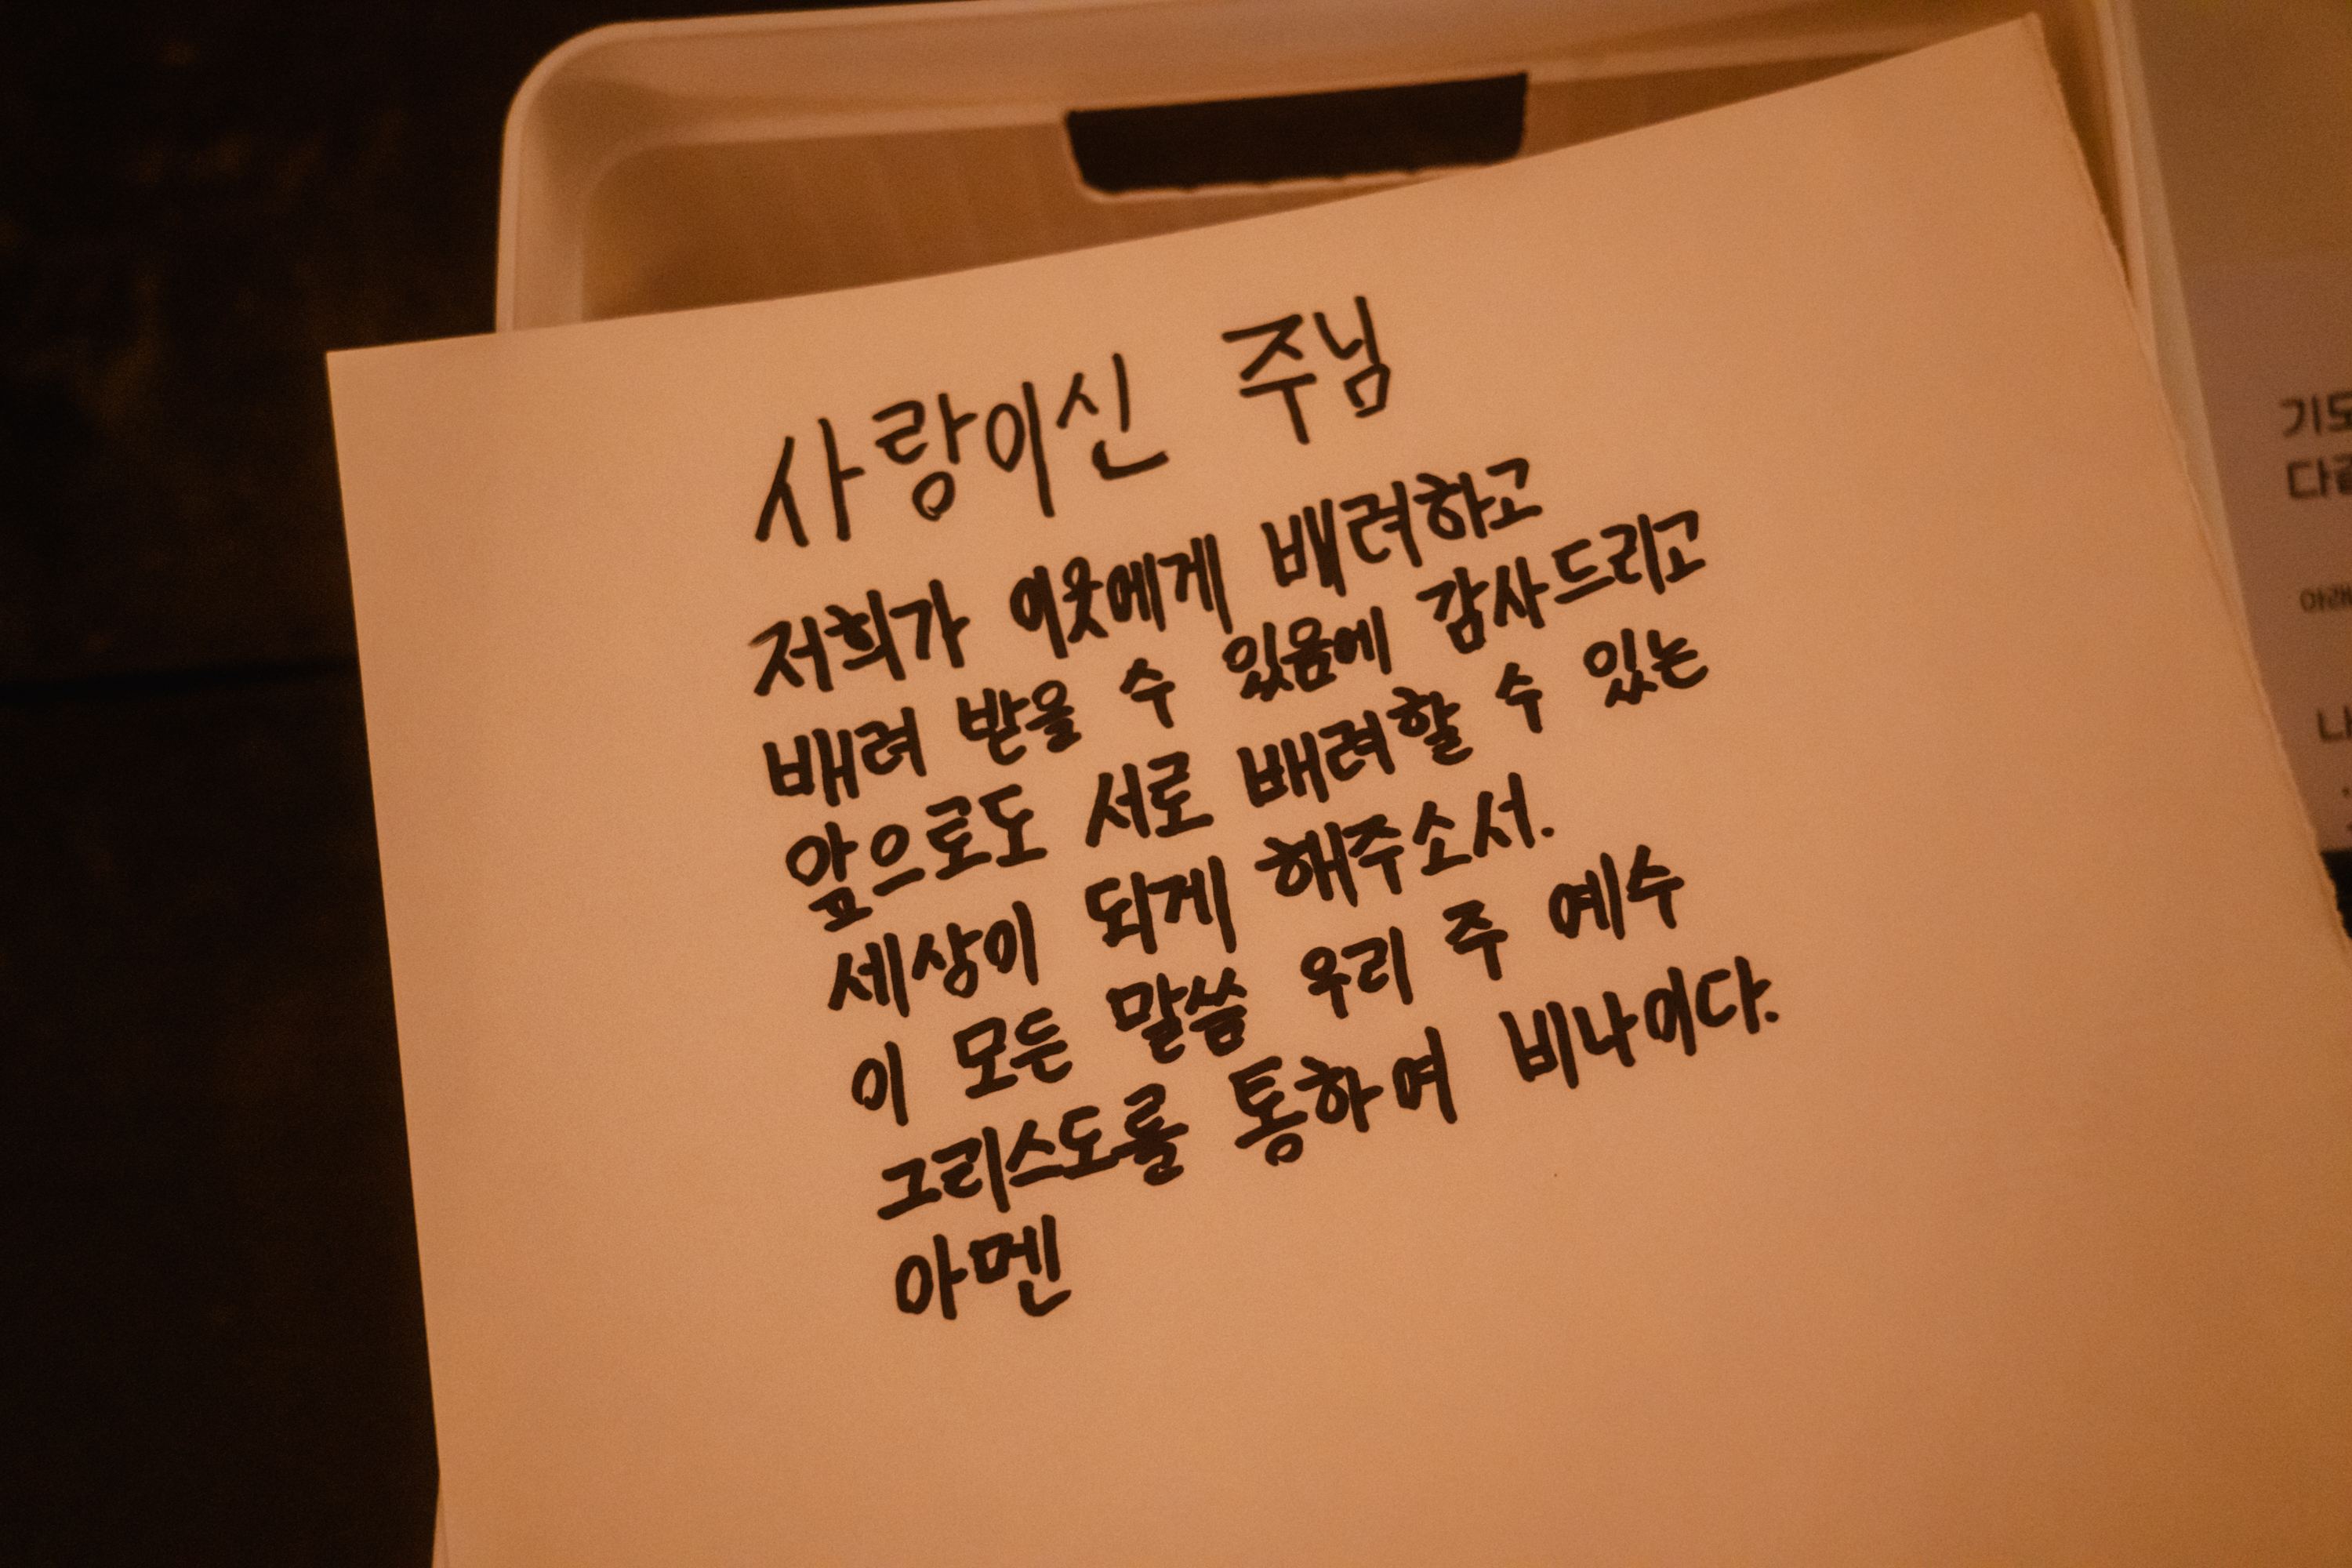 사랑이신 주님
저희가 이웃에게 배려하고
배려 받을 수 있음에 감사드리고
앞으로도 서로 배려할 수 있는
세상이 되게 해주소서.
이 모든 말씀 우리 주 예수
그리스도를 통하여 비나이다.
아멘